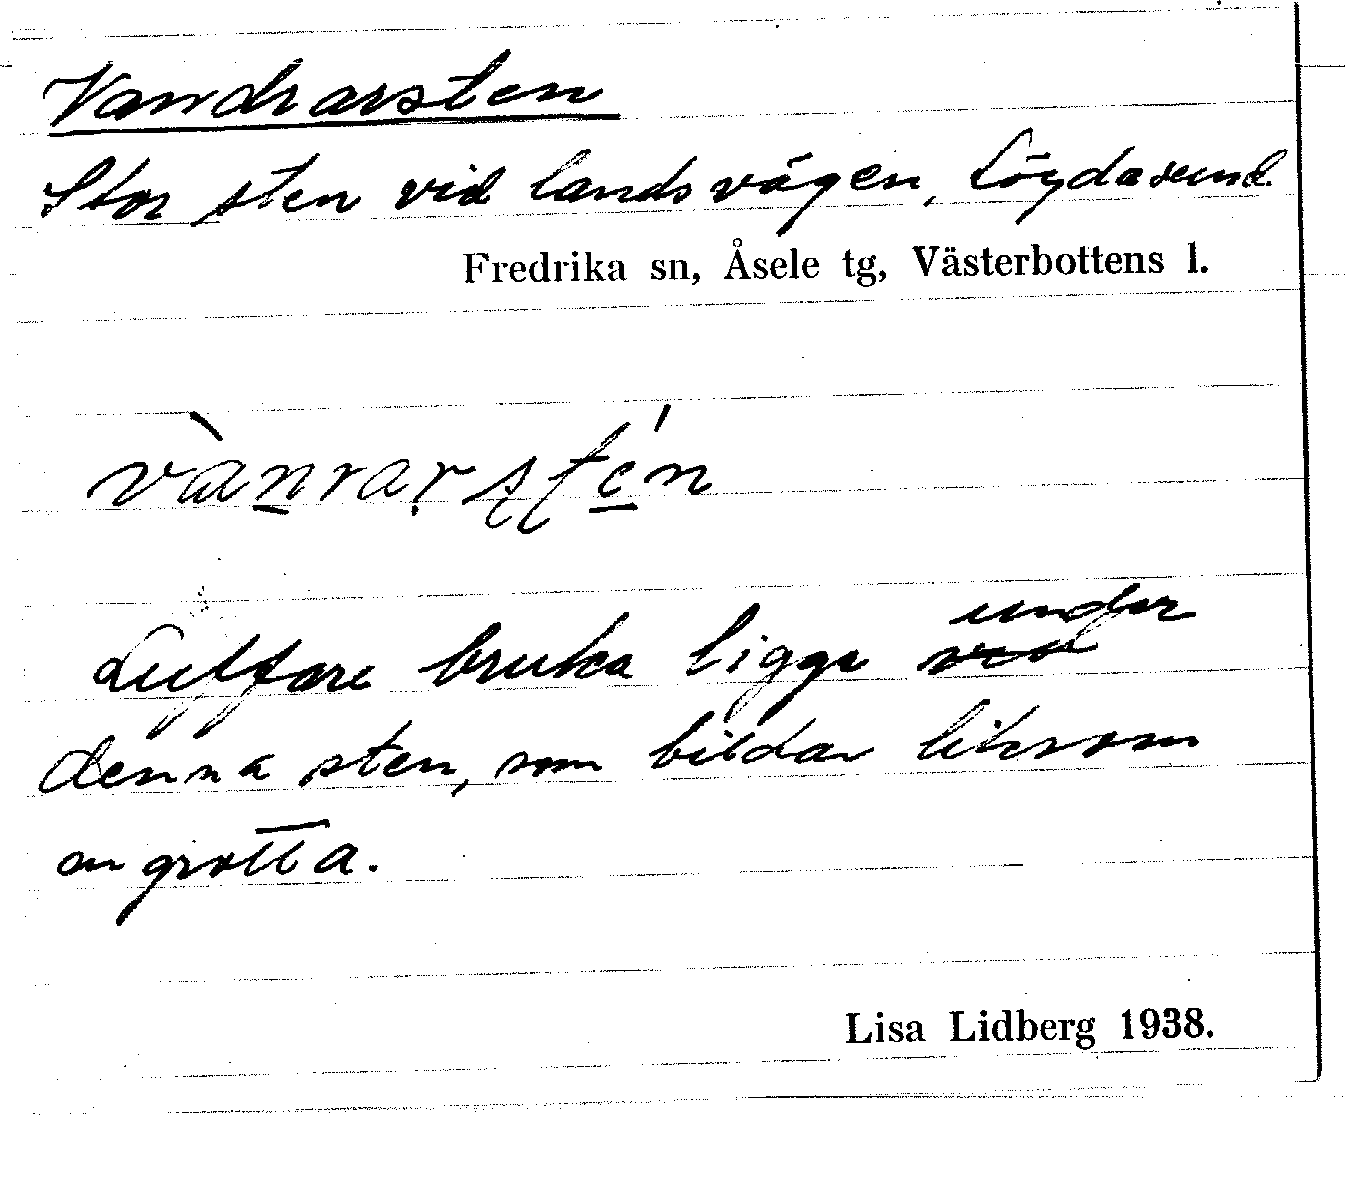 Vandrarsten
Stor sten vid landsvägen, Lögdasund.
Fredrika sn, Åsele tg, Västerbottens l.
vànrarstén
under
Luffare bruka ligga vid
denna sten, som bildar liksom
en grotta.
Lisa Lidberg 1938.